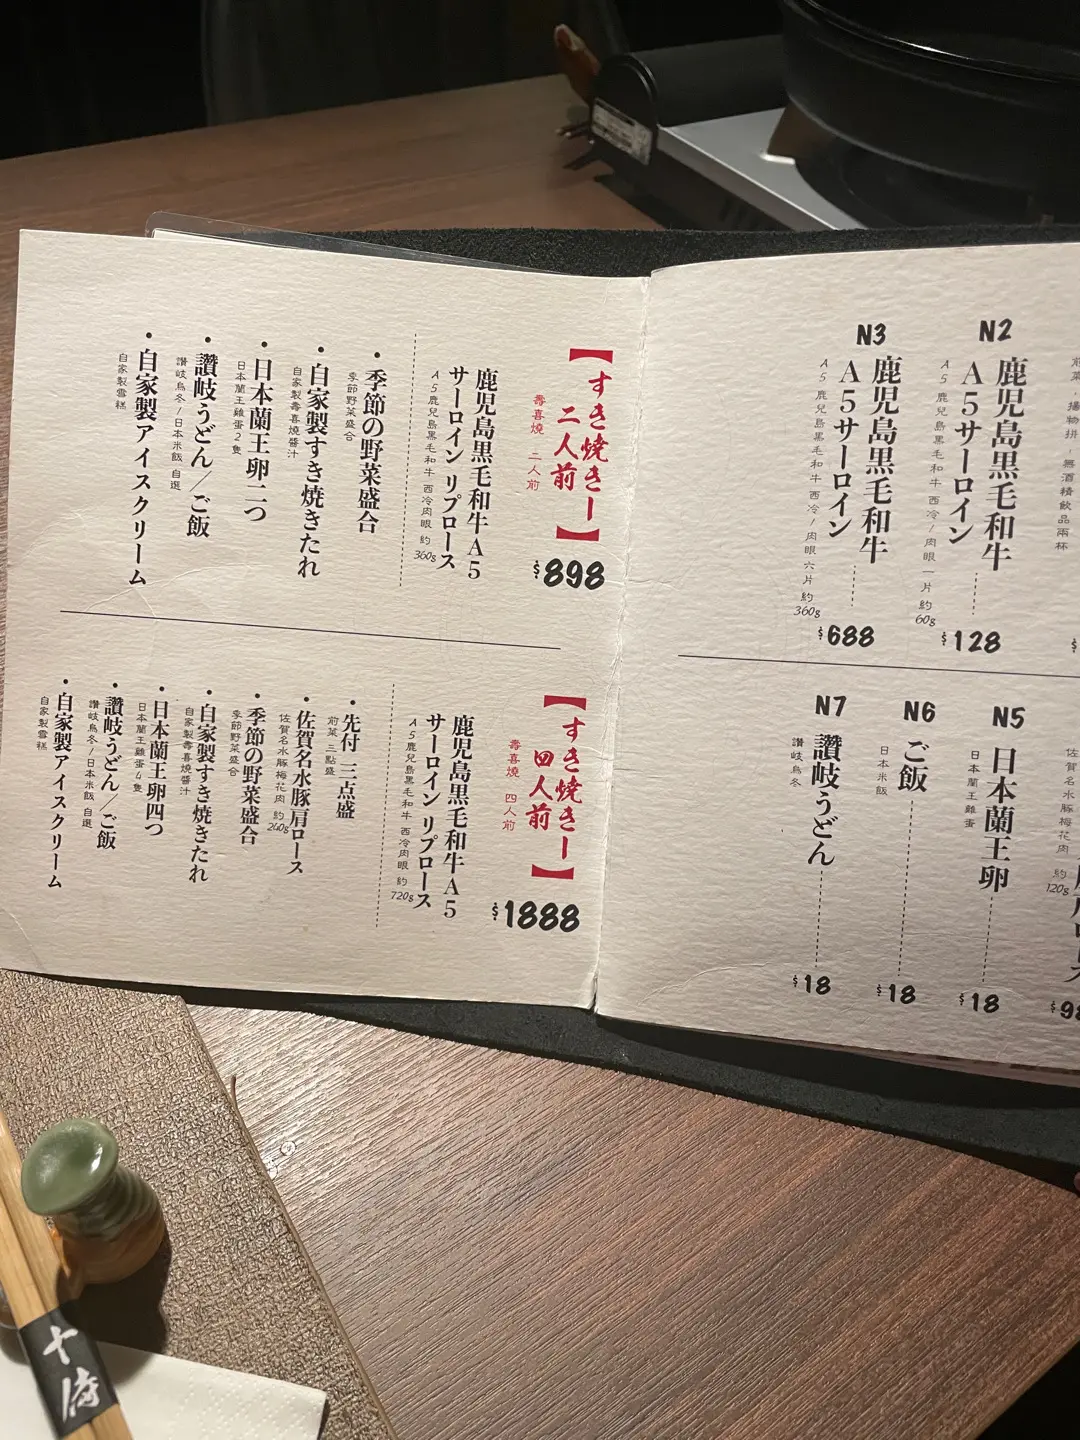 N2
鹿児島黒毛和牛
A5サーロイン
A5鹿兒島黒毛和牛 西冷/肉眼 一片 約60g
$128
N3
鹿児島黒毛和牛
A5サーロイン
A5鹿兒島黒毛和牛 西冷/肉眼 六片 約360g
$688
佐賀名水豚梅花肉 約120g
N5
日本蘭王卵
日本蘭王雞蛋
$18
N6
ご飯
日本米飯
$18
N7
讃岐うどん
讃岐烏冬
$18
【すき焼き一二人前】
壽喜燒 二人前
$898
鹿児島黒毛和牛A5
サーロイン リブロース
A5鹿兒島黒毛和牛 西冷肉眼 約360g
・季節の野菜盛合
季節野菜盛合
・自家製すき焼きたれ
自家製壽喜燒醬汁
・日本蘭王卵二つ
日本蘭王雞蛋2隻
・讃岐うどん/ご飯
讃岐烏冬/日本米飯 自選
・自家製アイスクリーム
自家製雪糕
【すき焼き一四人前】
壽喜燒 四人前
$1888
鹿児島黒毛和牛A5
サーロイン リブロース
A5鹿兒島黒毛和牛 西冷肉眼 約720g
・先付 三点盛
前菜 三點盛
・佐賀名水豚肩ロース
佐賀名水豚梅花肉 約240g
・季節の野菜盛合
季節野菜盛合
・自家製すき焼きたれ
自家製壽喜燒醬汁
・日本蘭王卵四つ
日本蘭王雞蛋4隻
・讃岐うどん/ご飯
讃岐烏冬/日本米飯 自選
・自家製アイスクリーム
自家製雪糕